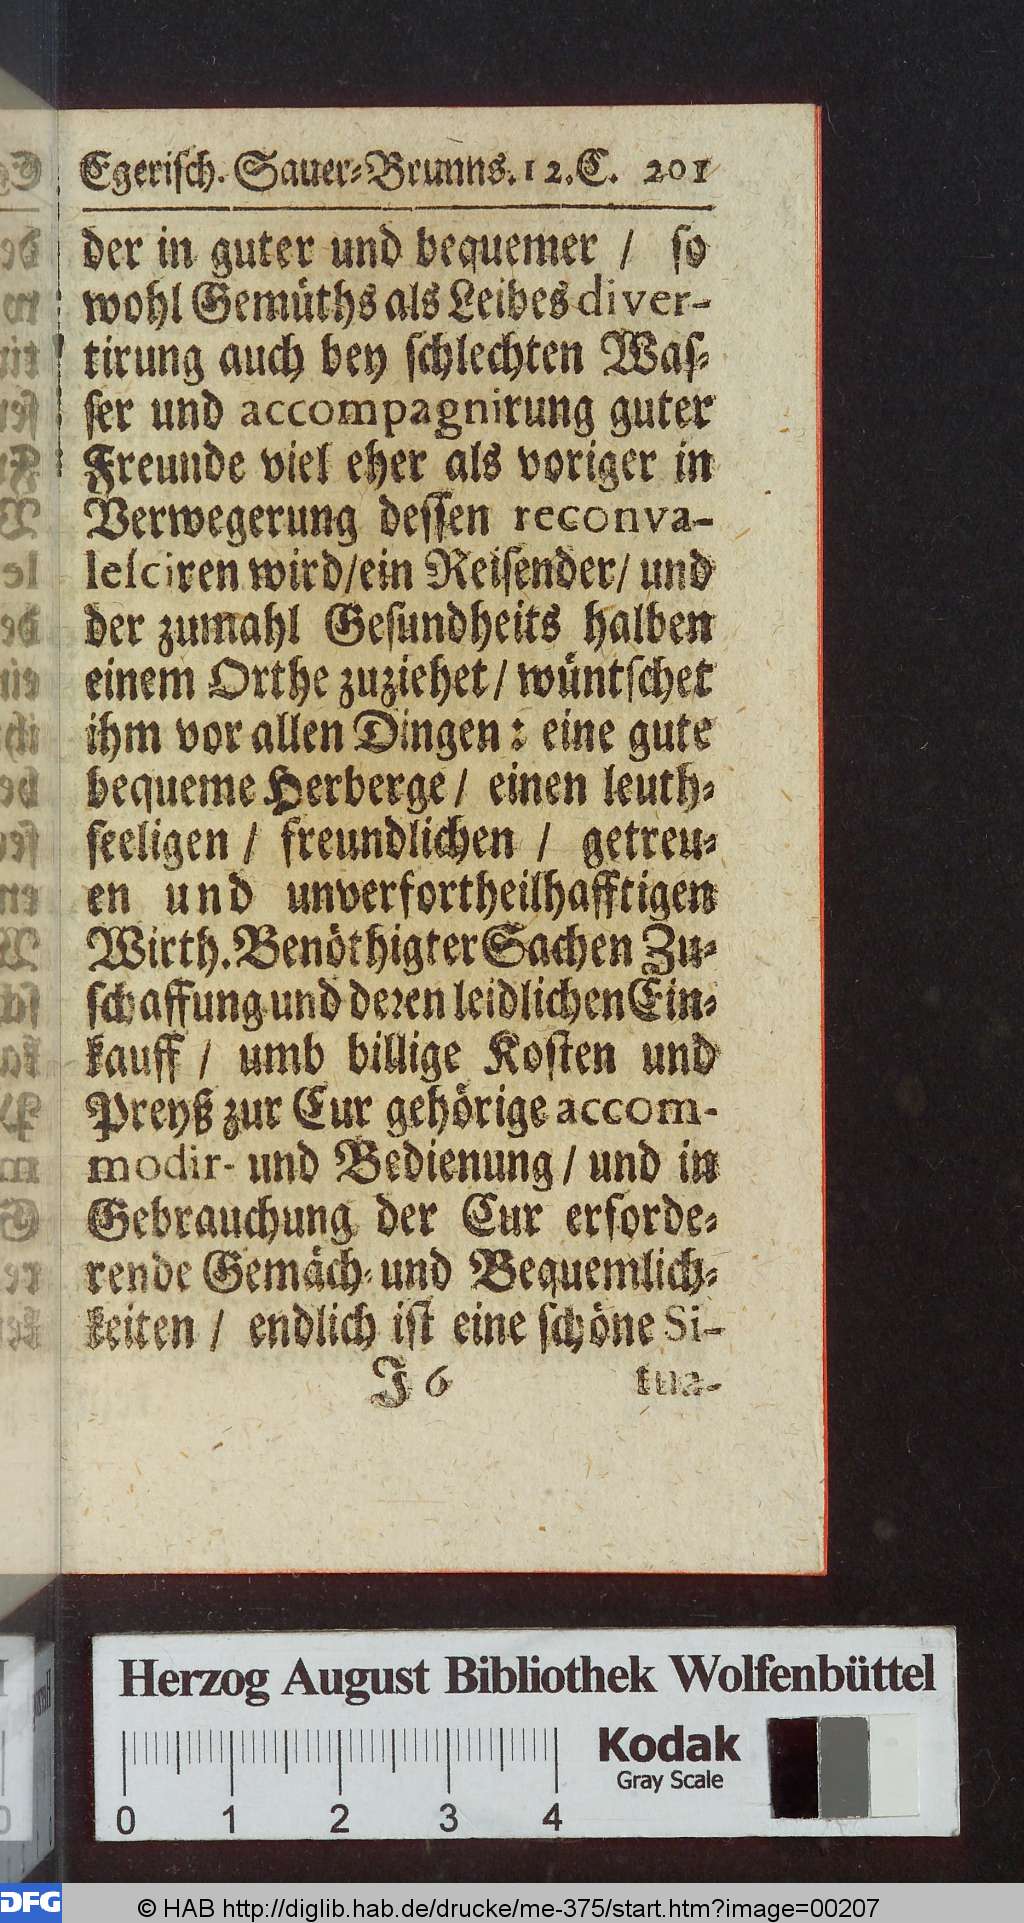 Egerisch. Sauer-Brunns. 12. C. 201
der in guter und bequemer / so
wohl Gemüths als Leibes diver-
tirung auch bey schlechten Was-
ser und accompagnirung guter
Freunde viel eher als voriger in
Verwegerung dessen reconva-
lelciren wird/ein Reisender/ und
der zumahl Gesundheits halben
einem Orthe zuziehet / wüntschet
ihm vor allen Dingen : eine gute
bequeme Herberge / einen leuth-
seeligen / freundlichen / getreu-
en und unverfortheilhafftigen
Wirth. Benöthigter Sachen Zu-
schaffung und deren leidlichen Ein-
kauff / umb billige Kosten und
Preyß zur Cur gehörige accom-
modir- und Bedienung / und in
Gebrauchung der Cur erforde-
rende Gemäch- und Bequemlich-
keiten / endlich ist eine schöne Si-
J 6 tua-
Herzog August Bibliothek Wolfenbüttel
Kodak
Gray Scale
0 1 2 3 4
DFG © HAB http://diglib.hab.de/drucke/me-375/start.htm?image=00207